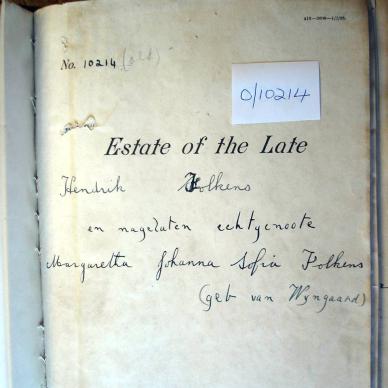 No. 10214 (old)
0/10214
Estate of the Late
Hendrik Folkens
en nagelaten echtgenoote
Margaretta Johanna Sofia Folkens
(geb van Wyngaard)